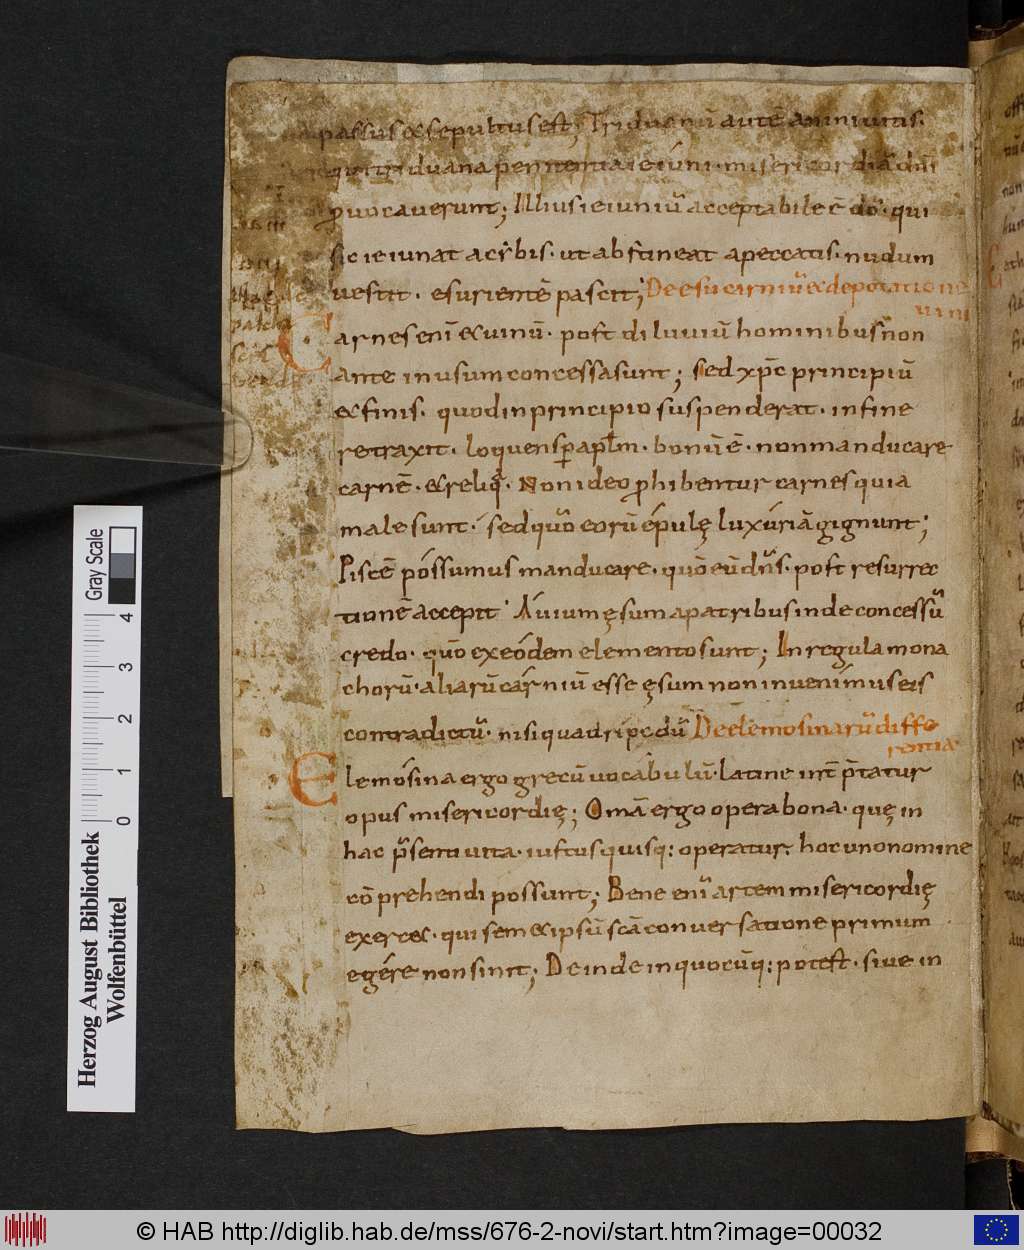 passus & sepultus est; Triduanū autē a niniuitis.
qui triduana penitentia ieiuni. misericordiā dn̄i
ꝓuocauerunt; Illius ieiuniū acceptabile ē dō. qui
sic ieiunat a cybis. ut abstineat a peccatis. nudum
uestit. esurientē pascit; De esu carniū & de potatione
uini
Carnes enī & uinū. post diluuiū hominibus non
ante in usum concessa sunt; sed xp̄c principiū
& finis. quod in principio suspenderat. in fine
retraxit. loquens ꝑ apl̄m. bonū ē. non manducare
carnē. & reliq̄. Non ideo ꝓhibentur carnes quia
male sunt. sed quō eorū epulę luxuriā gignunt;
Piscē possumus manducare. quō eū dn̄s. post resurrec
tionē accepit. Auium ęsum a patribus inde concessū
credo. quō ex eodem elemento sunt; In regula mona
chorū. aliarū carniū esse ęsum non inuenimus eis
contradictū. nisi quadripedū De elemosinarū diffe
rentia
Elemosina ergo grecū uocabulū. latine int̄ p̄tatur
opus misericordię; Omā ergo opera bona. quę in
hac p̄senti uita. iustus quisq: operatur. hoc uno nomine
cō prehendi possunt; Bene enī artem misericordię
exerc&. qui sem&ipsū scā conuersatione primum
egere non sinit; Deinde in quocūq: potest. siue in
Herzog August Bibliothek
Wolfenbüttel
Gray Scale
0 1 2 3 4
© HAB http://diglib.hab.de/mss/676-2-novi/start.htm?image=00032